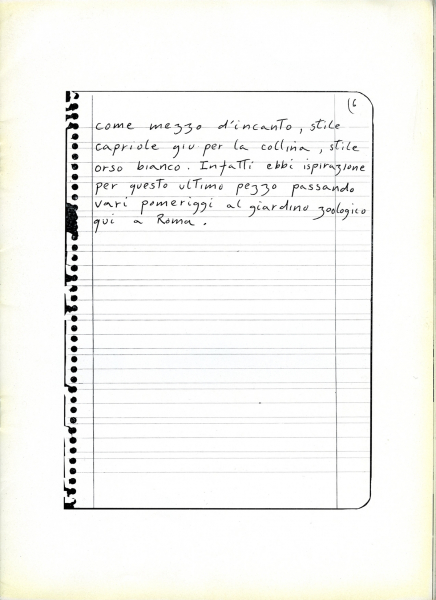 (6
come mezzo d'incanto, stile
capriole giu per la collina, stile
orso bianco. Infatti ebbi ispirazione
per questo ultimo pezzo passando
vari pomeriggi al giardino zoologico
qui a Roma.